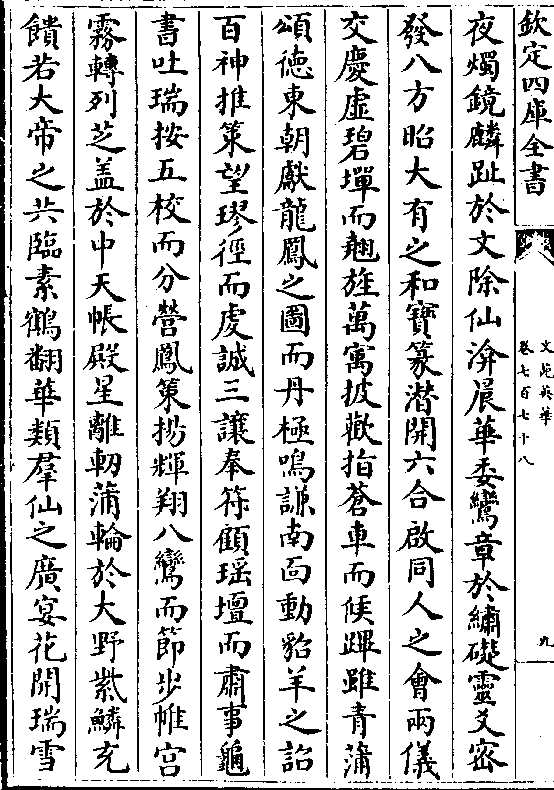 欽定四庫全書
文苑英華
卷七百七十八
九
夜燭鏡麟趾於文除仙渰晨華委鸞章於繡礎靈爻密
發八方昭大有之和寶篆潛開六合啟同人之會兩儀
交慶虛碧墠而翹旌萬㝢披歡指蒼車而候蹕雖青蒲
頌德東朝獻龍鳳之圖而丹極鳴謙南面動貂羊之詔
百神推策望璆徑而虔誠三讓奉符顧瑶壇而肅事龜
書吐瑞按五校而分營鳳策揚輝翔八鸞而節步帷宫
霧轉列芝盖於中天帳殿星離軔蒲輪於大野紫鱗充
饋若大帝之共臨素鶴翻華類羣仙之廣宴花開瑞雪